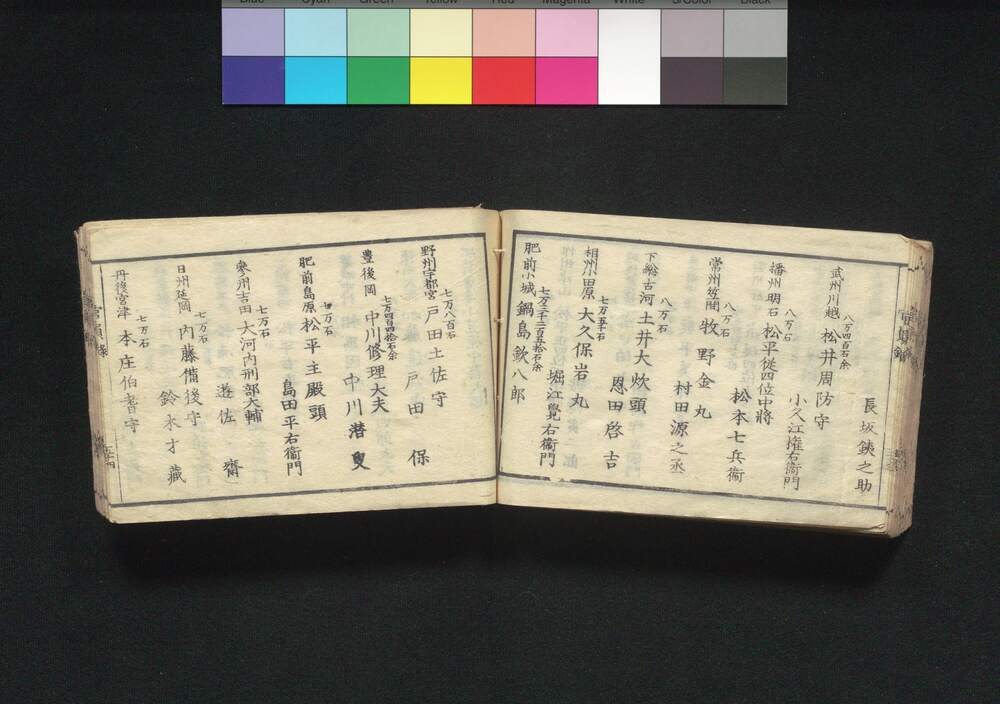 Blue Cyan Green Yellow Red Magenta White 3/Color Black
長坂鋏之助
八万四百石余
武州川越 松井周防守
小久江権右衞門
八万石
播州明石 松平従四位中将
松本七兵衞
八万石
常州笠間 牧野金丸
村田源之丞
八万石
下総古河 土井大炊頭
恩田啓吉
七万五千石
相州小田原 大久保岩丸
堀江覺右衞門
七万三千二百五拾石余
肥前小城 鍋島欽八郎
七万八百石
野州宇都宮 戸田土佐守
戸田保
七万四百四拾石余
豊後岡 中川修理大夫
中川潜叟
七万石
肥前島原 松平主殿頭
島田平右衞門
七万石
参州吉田 大河内刑部大輔
遊佐齋
七万石
日州延岡 内藤備後守
鈴木才藏
七万石
丹後宮津 本庄伯耆守
官員録